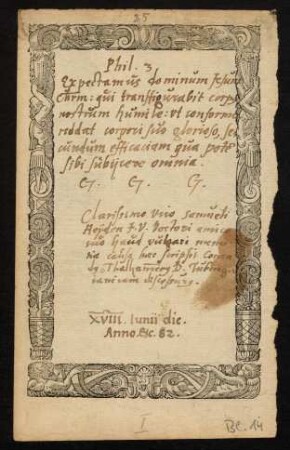 25
Phil. 3.
Expectamus dominum Jesum
Chrm: qui transfigurabit corp9
nostrum humile: ut conforme
reddat corpori suo glorioso, se
cundum efficaciam qua potest
sibi subijcere omnia.
G. G. G.
Clarissimo Viro Samueli
Heyden J. V. Doctori amico
suo haud vulgari memo
riæ causa hæc scripsit
D. Tubing
discessurus.
XVIII. Iunii die.
Anno &c. 82.
I
Bl. 14